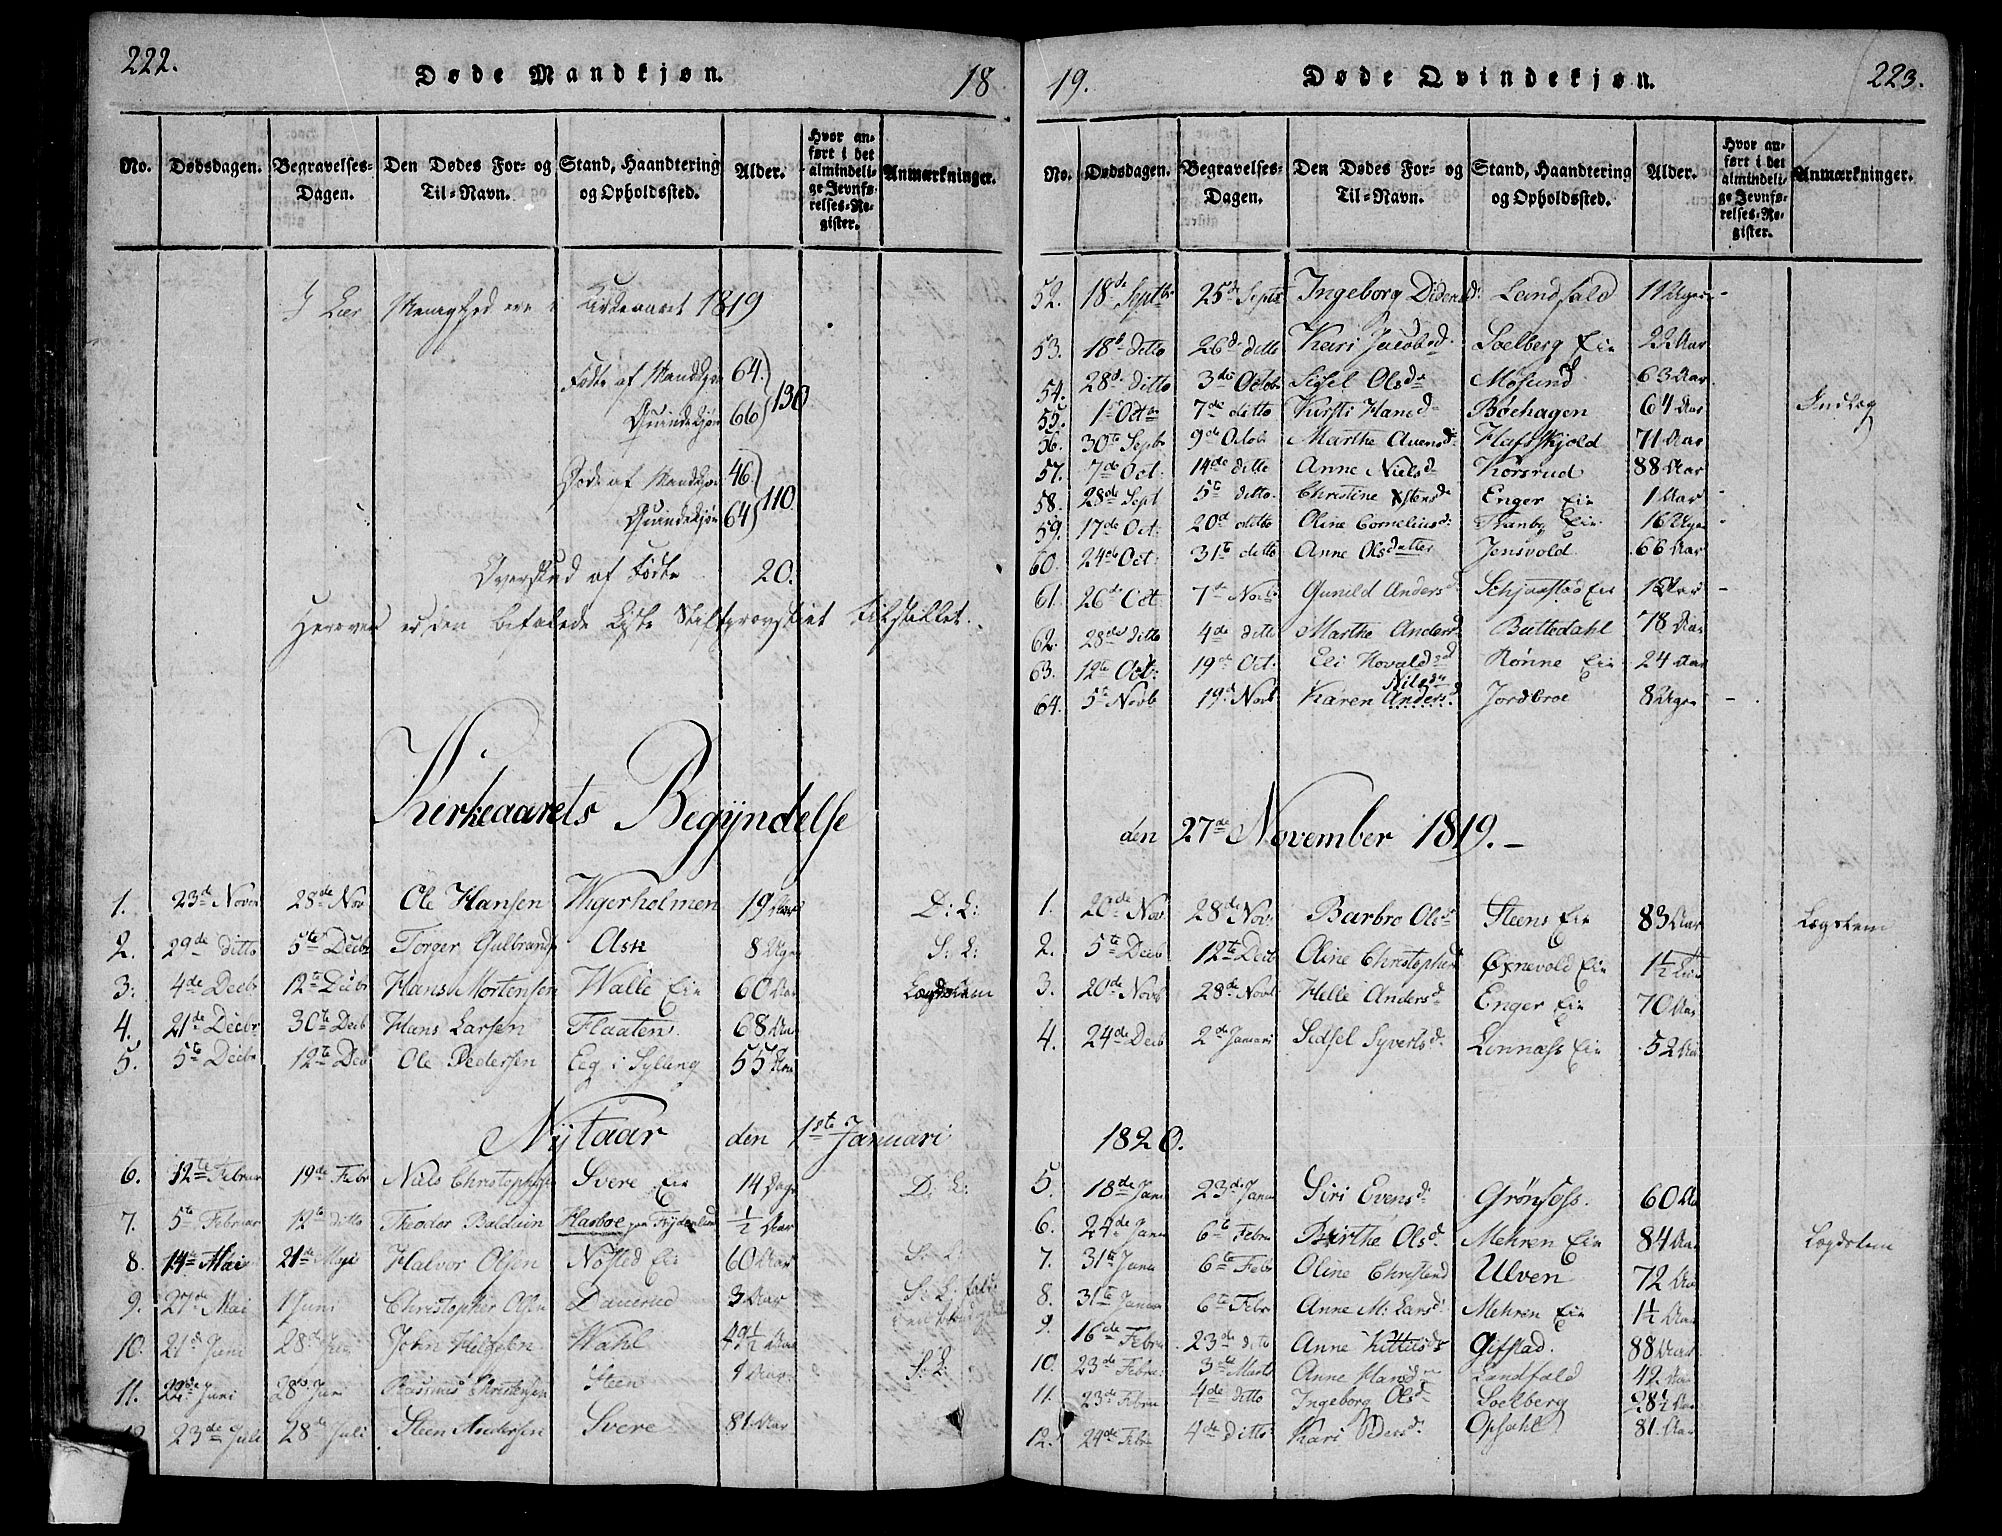 222.
Døde Mandkjøn.
18
No. Dødsdagen. Begravelses-Dagen. Den Dødes For- og Til-Navn. Stand, Haandtering og Opholdssted. Alder. Hvor anført i det almindelige Jevnførelses-Register. Anmærkninger.
I Lier Menighed ere i Kirkeaaret 1819
Fødte af Mandkjøn 64
130
Quindekjøn 66
Døde af Mandkjøn 46
110
Quindekjøn 64
Overskud af Fødte 20.
Herover er den befalede Liste Stiftprovstiet tilstillet.
Kirkeaarets Begyndelse
1. 23de Novem 28de Nov Ole Hansen Wigerholmen 19 D: L:
2. 29de ditto 5te Decbr Torger Gulbrands Ask 8 Uger S: L:
3. 4de Decbr 12te Decbr Hans Mortensen Walle Eie 60 Aar Lægdslem
4. 21de Decbr 30te Decb Hans Larsen Flaaten 68 Aar
5. 5te Decbr 12te Decb Ole Pedersen Eeg i Sylling 55 Aar
Nytaar den 1ste Januari
6. 12te Februar 19de Febr Niels Christophersen Svere Eie 14 Dage D: L:
7. 5te Februar 12te ditto Theodor Baldein Hasboe paa 1/2 Aar
8. 14de Mai 21de Maji Halvor Olsen Nøsted Eie 60 Aar S: L:
9. 27de Mai 1 Juni Christopher Olsen Dauerud 3 Aar S: L:
10. 21de Juni 28de John Helgesen Wahl 49 1/2 Aar
11. 22de Juni 28de Jun Rasmus Christensen Steen 4 Aar S: L:
12 23de Juli 28de Juli Steen Andersen Svere 81 Aar
19.
Døde Qvindekjøn.
223.
No. Dødsdagen. Begravelses-Dagen. Den Dødes For- og Til-Navn. Stand, Haandtering og Opholdssted. Alder. Hvor anført i det almindelige Jevnførelses-Register. Anmærkninger.
52. 18de Septbr 25de Septb Ingeborg Didriksd: Landfald 11 Uger -
53. 18de ditto 26de ditto Kari Jacobsd. Soelberg Eie 22 Aar
54. 28de ditto 3die Octob Sissel Olsd Møsund 63 Aar
55. 1ste Octb 7de ditto Kirsti Hansd Bøehagen 64 Aar Indlæg
56. 30te Septb 9de Octob Marthe Auensd: Hafskjold 71 Aar
57. 7de Oct. 14de ditto Anne Nielsd Korsrud 88 Aar
58. 28de Sept 5te ditto. Christine Enger Eie 1 Aar -
59. 17de Oct 20de ditto Oline Corneliusd: Tranby Eie 16 Uger -
60. 24de Oct: 31te ditto Anne Olsdatter Jensvold 66 Aar
61. 26de Oct 7de Novb Gunild Andersd Schjærstad Eie -
62. 28de ditto 4de ditto Marthe Andersd Buttedahl 78 Aar
63. 12te Oct: 19de Oct: Eli Hovaldsd Rønne Eie 24 Aar
Nilsd
64. 5te Novb 19de Novb Karen Andersd. Jordbroe 8 Uger -
den 27de November 1819.-
1. 20de Nov. 28de Nov. Barbro Olsd Steens Eie 83 Aar Lægslem
2. 5te Decb 12te Decb Oline Christophersd Øxnevold Eie 1 1/2
3. 20de Novb 28de Novb Helle Andersd Enger Eie 70 Aar
4. 24de Decb 2de Januari Sidsel Syvertsd. Linnæss Eie 52 Aar
1820.
5. 18de Janu 23de Janu Siri Evensd: Grønsess. 60 Aar
6. 24de Janu 6te Febru Birthe Olsd. Mehren Eie 84 Aar Lægdslem
7. 31te Janu 6te Febr Oline Christensd Ulven 72 Aar
8. 31te Januar 6te Febr Anne M: Larsd: Mehren Eie 1 1/2 Aar
9. 16de Febru 23de ditto Anne Kittilsd Gifstad. 88 Aar
10. 23de Febru 3de Marts Anne Hansd Landfald 42 Aar
11. 23de Febru 4de ditto Ingeborg Olsd Soelberg 28 1/2 Aar
12. 24de Febr 4de Ditto Kari Pedersd. Opsahl 81 Aar